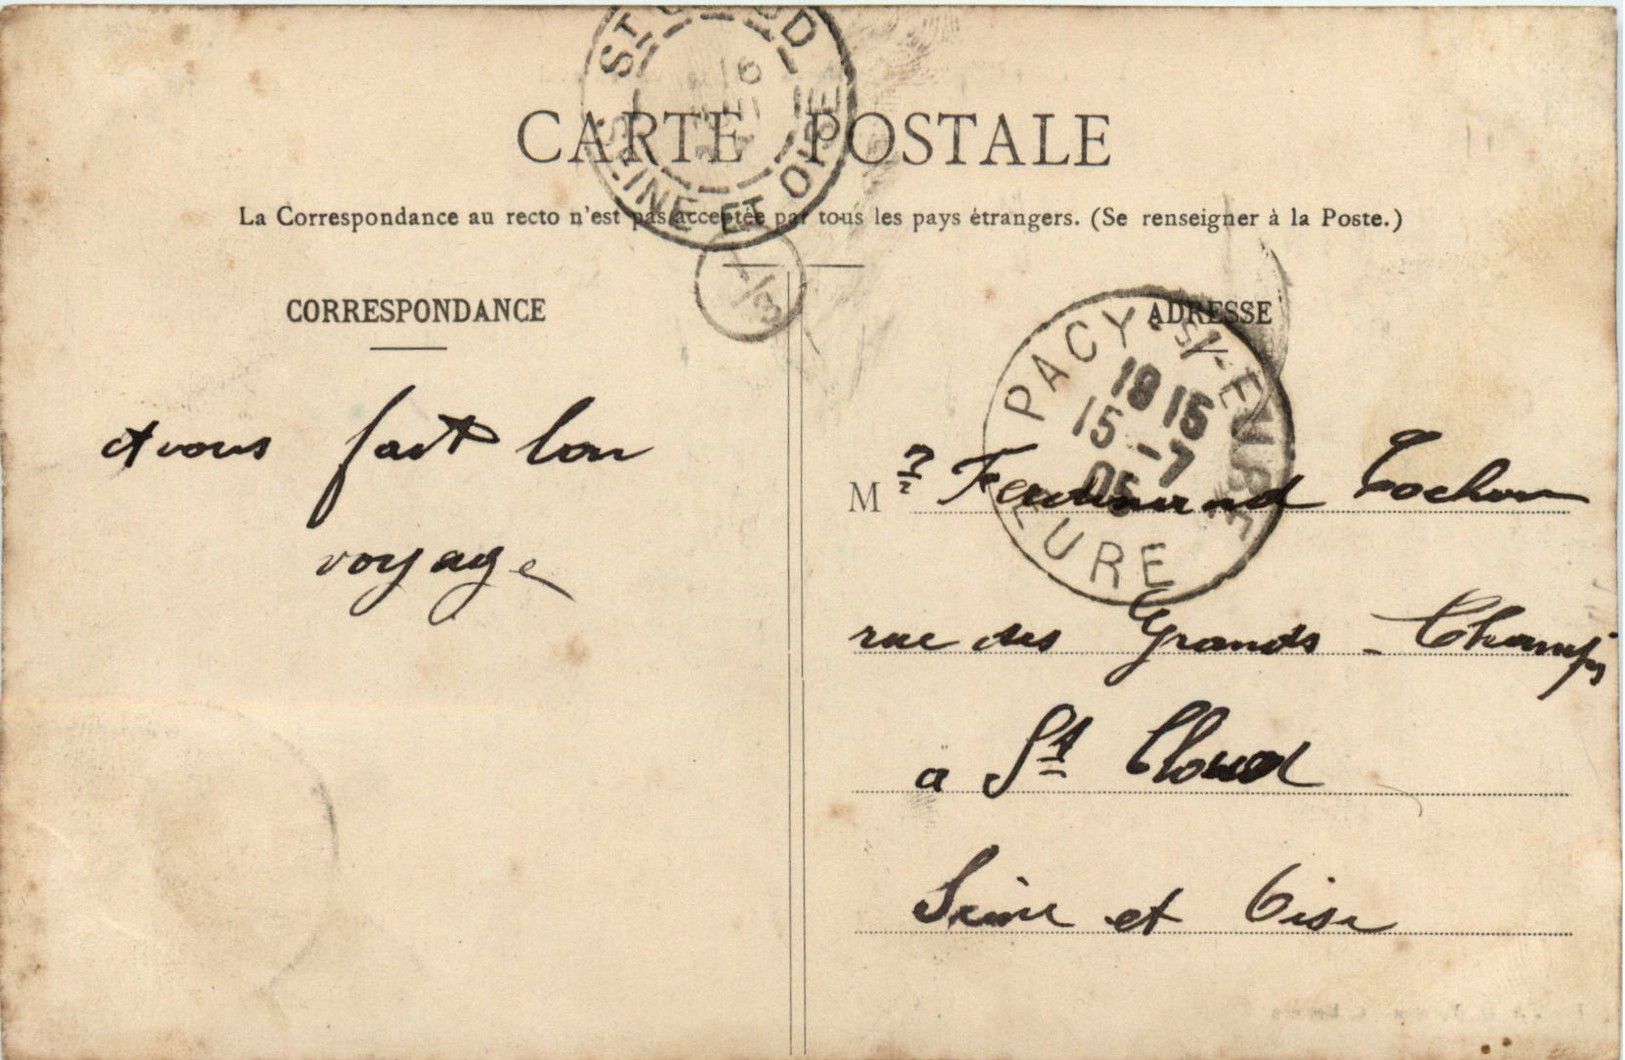 ST CLOUD
SEINE ET OISE
CARTE POSTALE
La Correspondance au recto n'est pas acceptée par tous les pays étrangers. (Se renseigner à la Poste.)
CORRESPONDANCE
et vous fait bon
voyage
ADRESSE
PACY-S-EURE
18 15
15 -7
05
EURE
M r Ferdinand Cochon
rue des Grands - Champs
à St Cloud
Seine et Oise